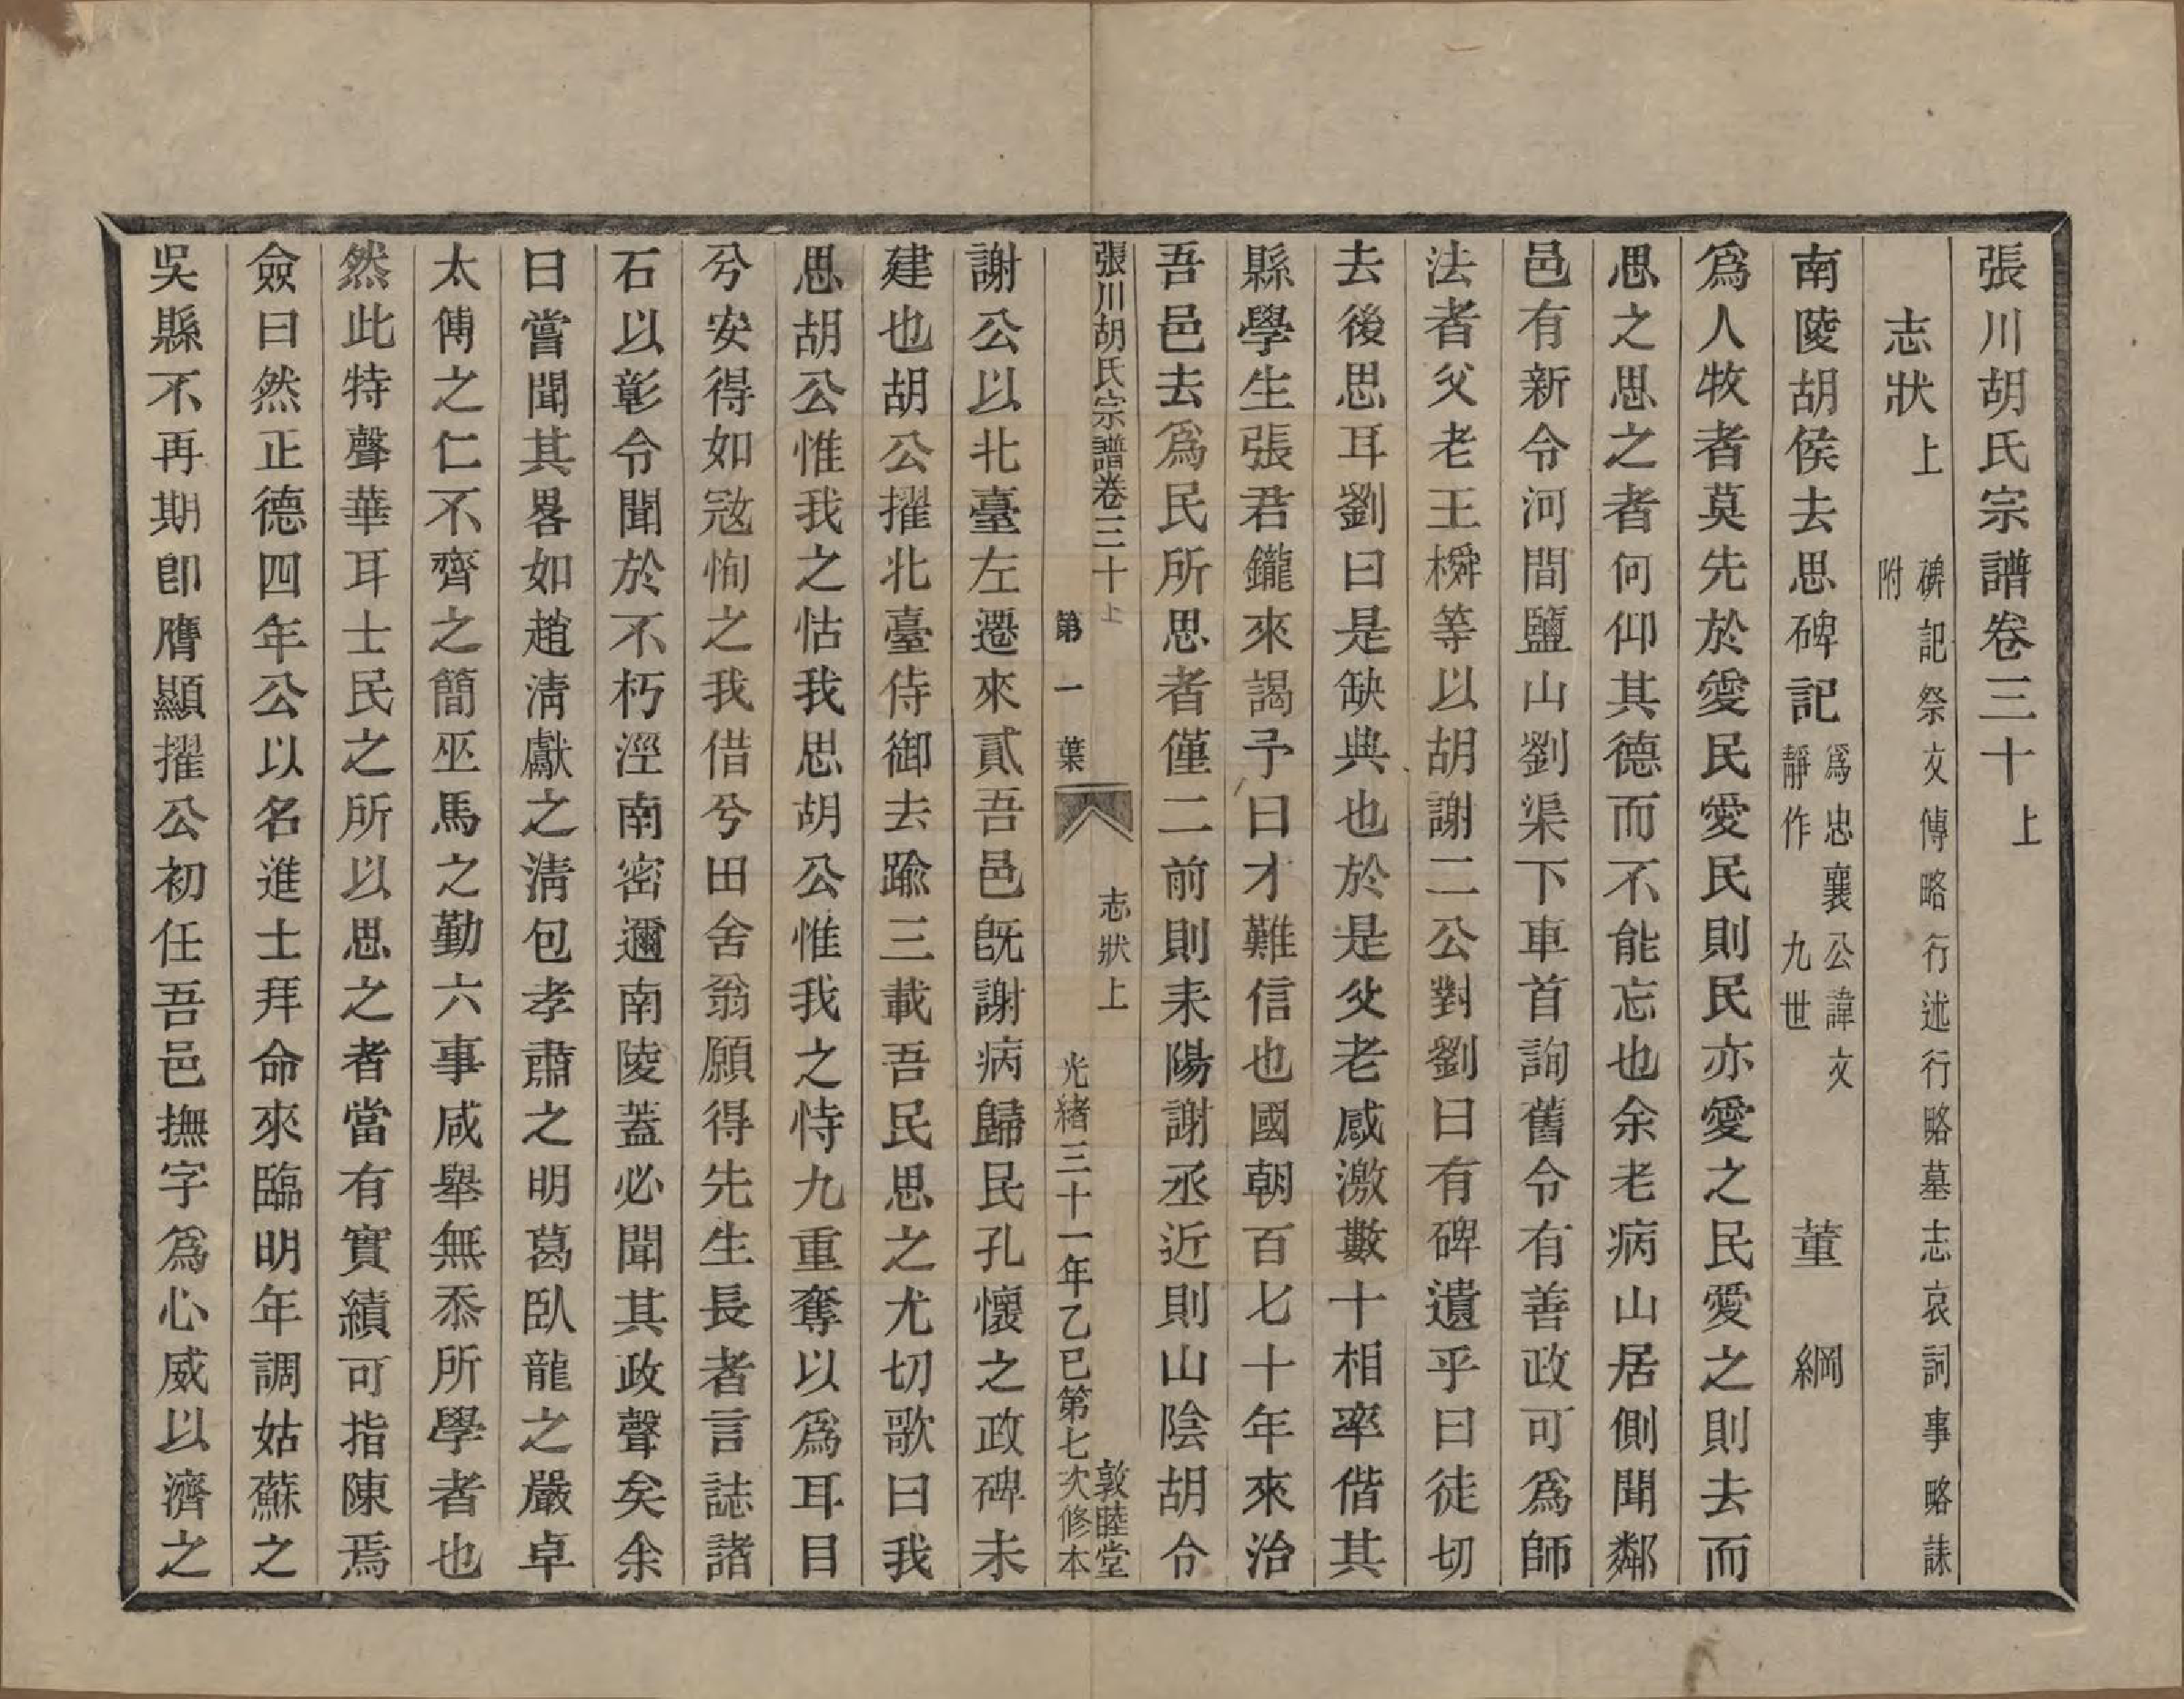 張川胡氏宗譜卷三十上
志狀上 碑記祭文傳略行述行略墓志哀詞事略誄附
南陵胡侯去思碑記 爲忠襄公諱文靜作九世 董綱
爲人牧者莫先於愛民愛民則民亦愛之民愛之則去而
思之思之者何仰其德而不能忘也余老病山居側聞鄰
邑有新令河間鹽山劉渠下車首詢舊令有善政可爲師
法者父老王橓等以胡謝二公對劉曰有碑遺乎曰徒切
去後思耳劉曰是缺典也於是父老感激數十相率偕其
縣學生張君鑨來謁予曰才難信也國朝百七十年來治
吾邑去爲民所思者僅二前則耒陽謝丞近則山陰胡令
張川胡氏宗譜卷三十上 志狀上 敦睦堂
第一葉 光緒三十一年乙巳第七次修本
謝公以北臺左遷來貳吾邑旣謝病歸民孔懷之政碑未
建也胡公擢北臺侍御去踰三載吾民思之尤切歌曰我
思胡公惟我之怙我思胡公惟我之恃九重奪以爲耳目
兮安得如寇恂之我借兮田舍翁願得先生長者言誌諸
石以彰令聞於不朽涇南密邇南陵蓋必聞其政聲矣余
曰嘗聞其畧如趙淸獻之淸包孝肅之明葛臥龍之嚴卓
太傅之仁不齊之簡巫馬之勤六事咸舉無忝所學者也
然此特聲華耳士民之所以思之者當有實績可指陳焉
僉曰然正德四年公以名進士拜命來臨明年調姑蘇之
吳縣不再期卽膺顯擢公初任吾邑撫字爲心威以濟之